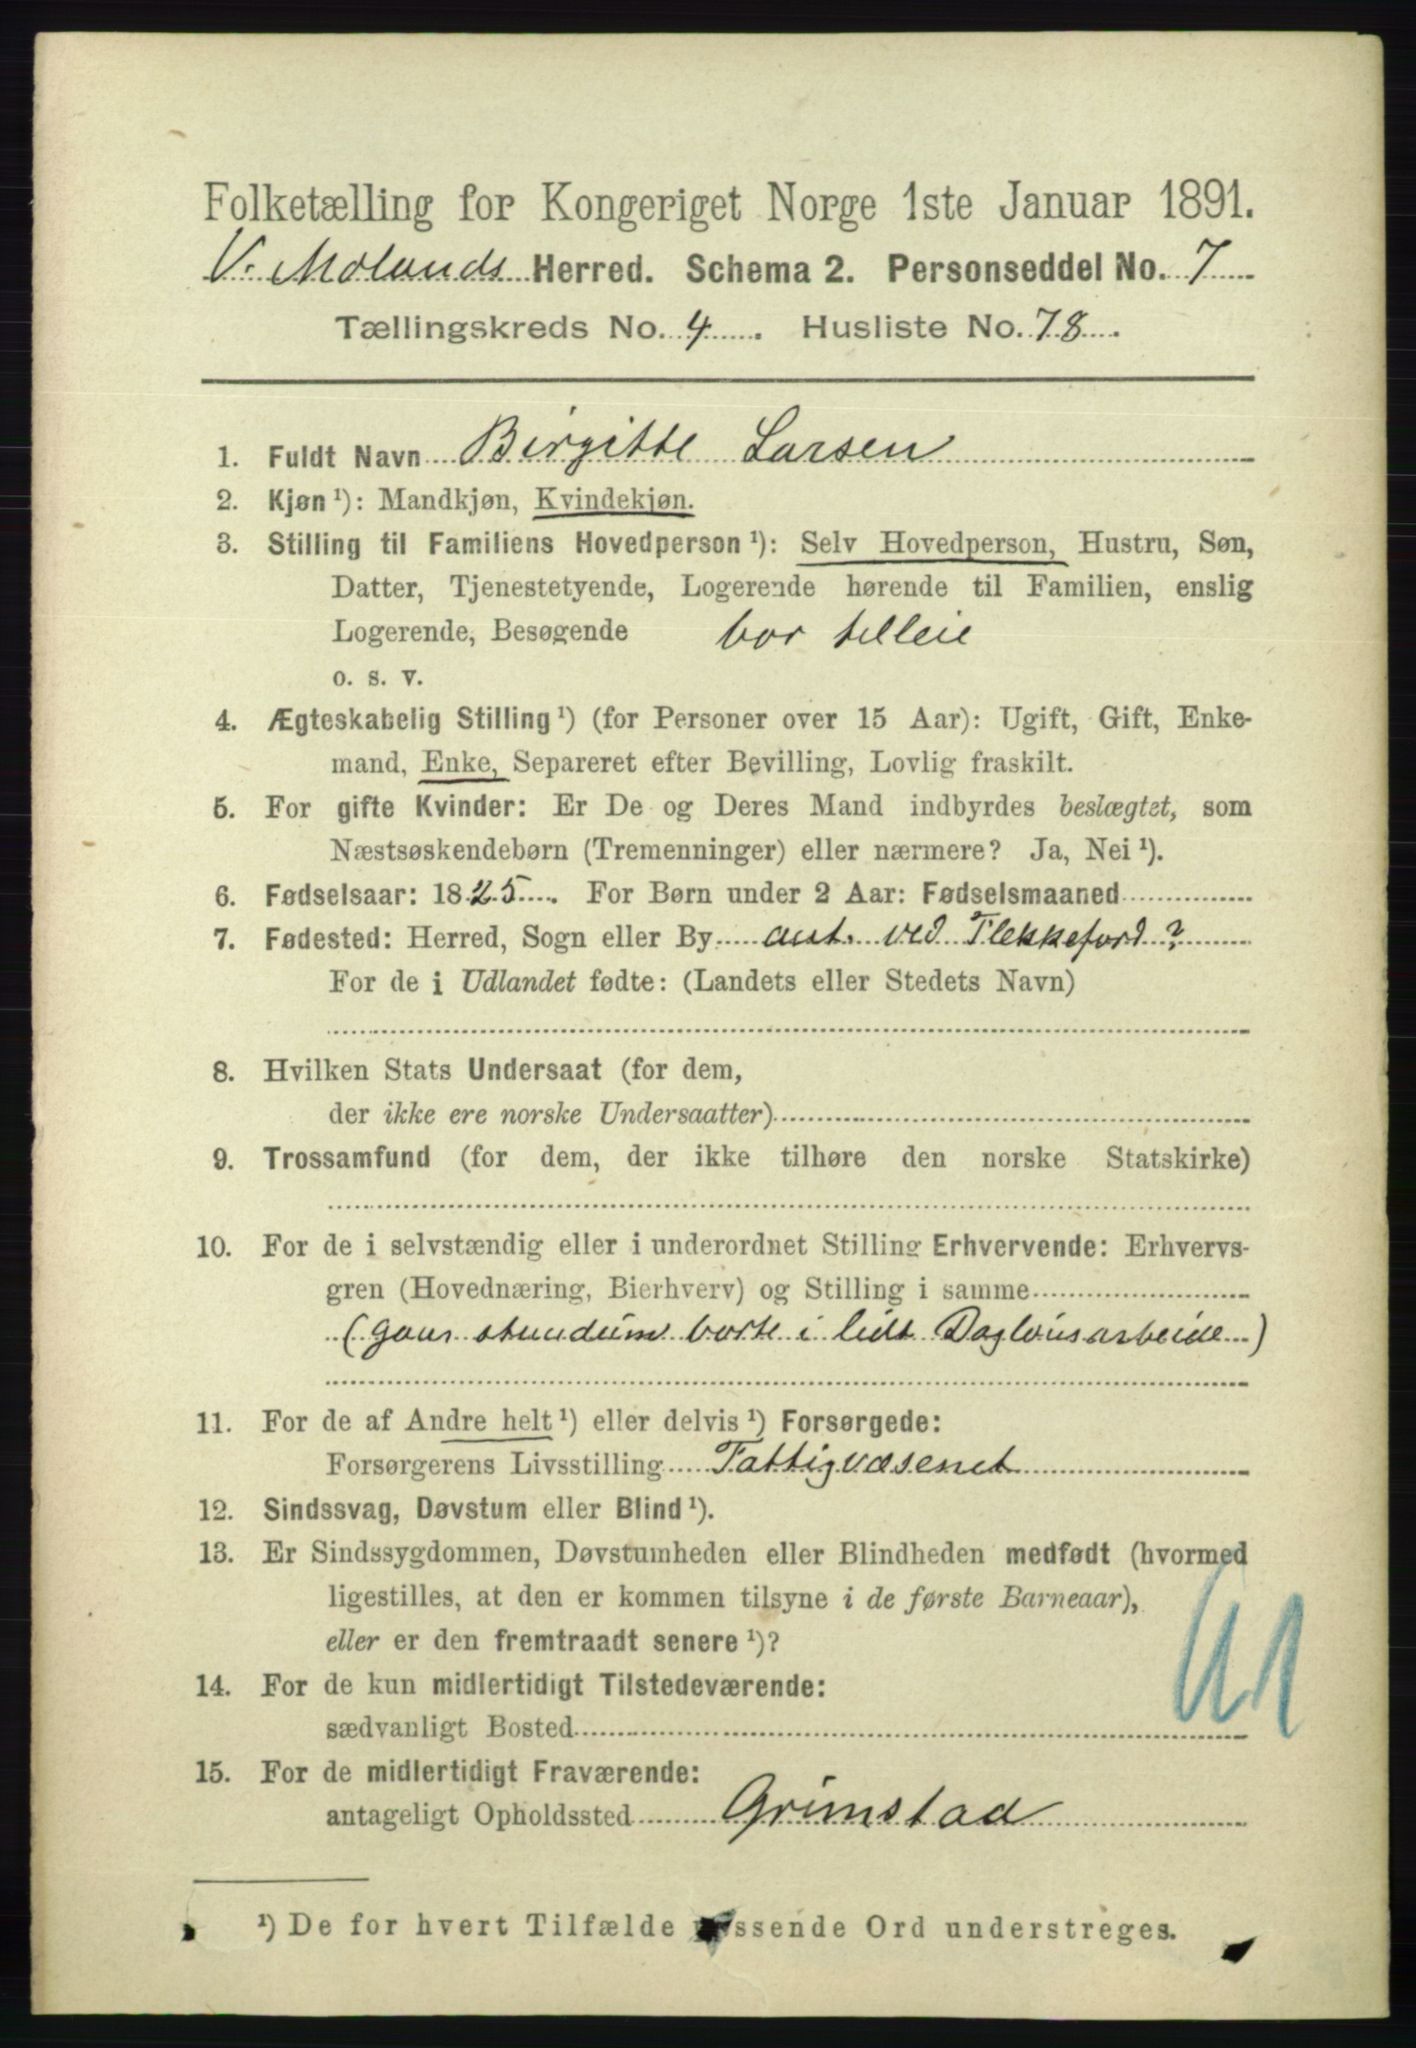 Folketælling for Kongeriget Norge 1ste Januar 1891.
V. Molands Herred. Schema 2. Personseddel No. 7
Tællingskreds No. 4. Husliste No. 78.
1. Fuldt Navn Birgitte Larsen
2. Kjøn ¹): Mandkjøn, Kvindekjøn.
3. Stilling til Familiens Hovedperson ¹): Selv Hovedperson, Hustru, Søn,
Datter, Tjenestetyende, Logerende hørende til Familien, enslig
Logerende, Besøgende bor tilleie
o. s. v.
4. Ægteskabelig Stilling ¹) (for Personer over 15 Aar): Ugift, Gift, Enke-
mand, Enke, Separeret efter Bevilling, Lovlig fraskilt.
5. For gifte Kvinder: Er De og Deres Mand indbyrdes beslægtet, som
Næstsøskendebørn (Tremenninger) eller nærmere? Ja, Nei ¹).
6. Fødselsaar: 1825. For Børn under 2 Aar: Fødselsmaaned
7. Fødested: Herred, Sogn eller By ant. ved Flekkefjord ?
For de i Udlandet fødte: (Landets eller Stedets Navn)
8. Hvilken Stats Undersaat (for dem,
der ikke ere norske Undersaatter)
9. Trossamfund (for dem, der ikke tilhøre den norske Statskirke)
10. For de i selvstændig eller i underordnet Stilling Erhvervende: Erhvervs-
gren (Hovednæring, Bierhverv) og Stilling i samme
(gaar stundum borte i lidt Daglønsarbeide)
11. For de af Andre helt ¹) eller delvis ¹) Forsørgede:
Forsørgerens Livsstilling Fattigvæsenet
12. Sindssvag, Døvstum eller Blind ¹).
13. Er Sindssygdommen, Døvstumheden eller Blindheden medfødt (hvormed
ligestilles, at den er kommen tilsyne i de første Barneaar),
eller er den fremtraadt senere ¹)?
14. For de kun midlertidigt Tilstedeværende:
sædvanligt Bosted
15. For de midlertidigt Fraværende:
antageligt Opholdssted Grimstad
¹) De for hvert Tilfælde passende Ord understreges.